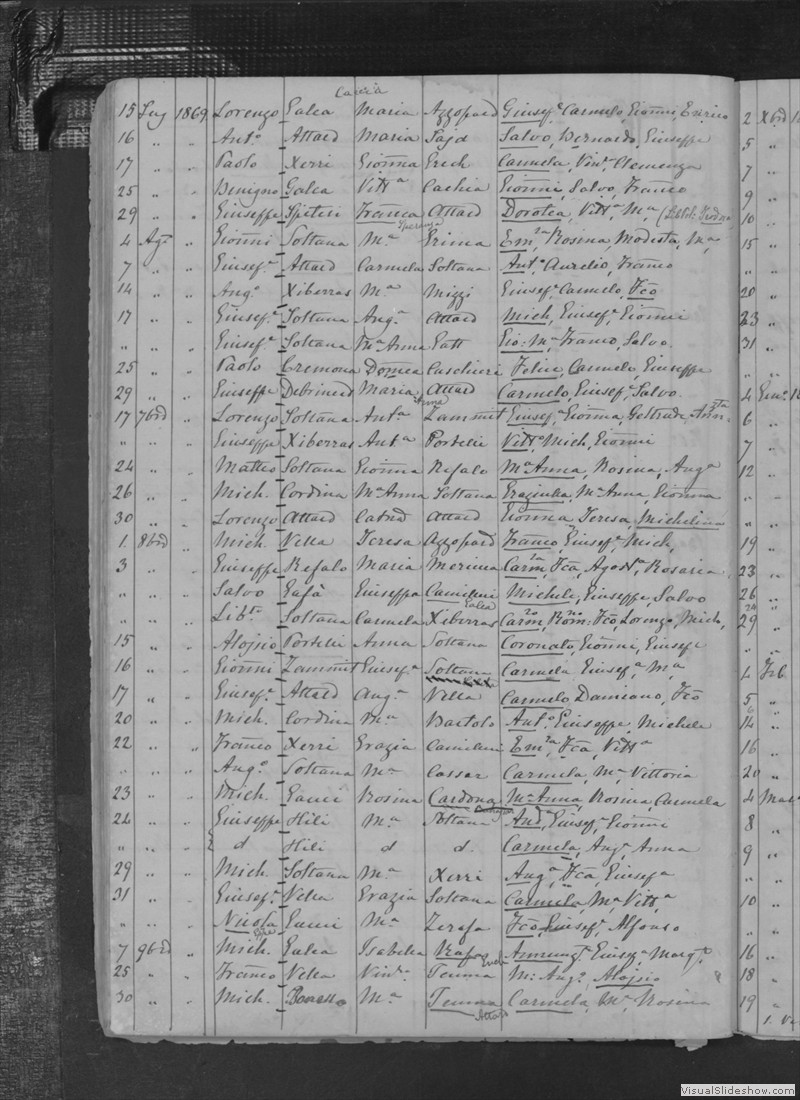 Cauc̃a
15 Lug 1869 Lorenzo Galea Maria Azzopard Giusef.e Carmelo Giõnni Enrico 2 Xbrd
16 " " Ant.o Attard Maria Sajd Salvo, Bernardo, Giuseppe 5 "
17 " " Paolo Xerri Giõnna Grech Carmela, Vin.a Clemenza 7 "
25 " " Benigno Galea Vitt.a Cachia Giõnni, Salvo, Franco 9 "
29 " " Giuseppe Spiteri Franca Attard Dorotea, Vitt.a, M.a 10 "
4 Ag.o " Giõnni Soltana M.a Grima Em.la Rosina Modesta, M.a 15 "
7 " " Giusef.e Attard Carmela Soltana Ant.o Aurelio, Franco " "
14 " " Ang.o Xiberras M.a Mizzi Giusef.e Carmelo, Fc̃o 20 "
17 " " Giusef.e Soltana Ang.a Attard Mich, Giusef.e Giõnni 23 "
" " " Giusef.e Soltana M.a Anna Gatt Gio: M.a Franco, Salvo. 31 "
25 " " Paolo Cremona Domca Caschieri Felice, Carmelo, Giuseppe " "
29 " " Giuseppe Debrincat Maria Attard Carmelo, Giusef.e Salvo. 4 Gen.o
Anna
17 7brd " Lorenzo Soltana Ant.a Zammit Giusef.a Giõnna, Geltruda 6 "
" " " Giuseppe Xiberras Ant.a Portelli Vitt.a Mich, Giõnni 7 "
24 " " Matteo Soltana Giõnna Refalo M.a Anna, Rosina, Ang.a 12 "
26 " " Mich. Cordina M.a Anna Soltana Graziulla, M.a Anna, Giõnna " "
30 " " Lorenzo Attard Catnd Attard Giõnna Teresa, Michelina " "
1 8brd " Mich. Vella Teresa Azzopard Franco Giusef.e Mich, 19 "
3 " " Giuseppe Refalo Maria Mercieca Carm.la, Fc̃a, Agost.a, Rosaria 23 "
" " " Salvo Gafà Giuseppa Camilleri Michele, Giuseppe, Salvo 26 "
Galea
" " " Lib.to Soltana Carmela Xiberras Carm.o, Rom.no, Fc̃o, Lorenzo, Mich, 29 "
15 " " Aloisio Portelli Anna Soltana Coronato, Giõnni, Giusepe " "
16 " " Giõnni Zammit Giusef.a Soltana Carmela Giusef.a, M.a 4 Feb
17 " " Giusef.e Attard Ang.a Vella Carmelo Damiano, Fc̃o 5 "
20 " " Mich. Cordina M.a Bartolo Ant.o Giuseppe, Michele 14 "
22 " " Franco Xerri Grazia Camilleri Em.la, Fc̃a, Vitt.a 16 "
" " " Ang.o Soltana M.a Cassar Carmela, M.a Vittoria 20 "
23 " " Mich. Gauci Rosina Cardona M.a Anna, Rosina, Carmela 4
24 " " Giuseppe Hili M.a Soltana And.a, Giusef.e Giõnni 8 "
" " " d Hili d d. Carmela, Ang.a, Anna 9 "
29 " " Mich. Soltana M.a Xerri Ang.a, Fc̃a, Giusef.a " "
31 " " Giusef.e Vella Grazia Soltana Carmela, M.a Vitt.a 10 "
" " " Nicola Gauci M.a Zerafa Fc̃o, Giusef.e, Alfonso " "
7 9brd " Mich. Galea Isabella Annunz.a Giusef.a Marg.a 16 "
25 " " Franco Vella Vin.a Teuma M: Ang.a, Aloisio 18 "
30 " " Mich. M.a Teuma Carmela, M.a, Rosina 19 "
Attard
VisualSlideshow.com